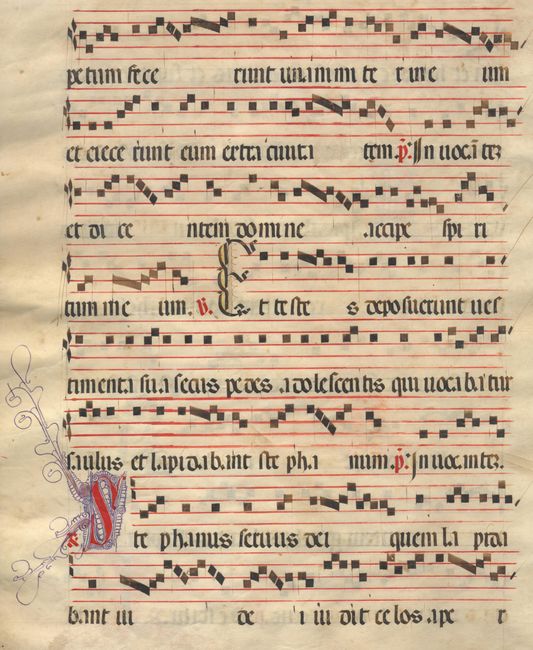 petum fece runt unanimi te r in e um
et eiece runt eum extra ciuita tem. p̃: Inuocāteʒ
et di ce ntem domine accipe spi ri
tum me um. ℣. Et teste s deposuerunt ues
timenta sua secus pedes adolescentis qui uocabatur
saulus et lapidabant ste pha num. p̃: Inuocanteʒ.
℟ Ste phanus seruus dei quem la pida
bant iu de i ui dit celos ape r